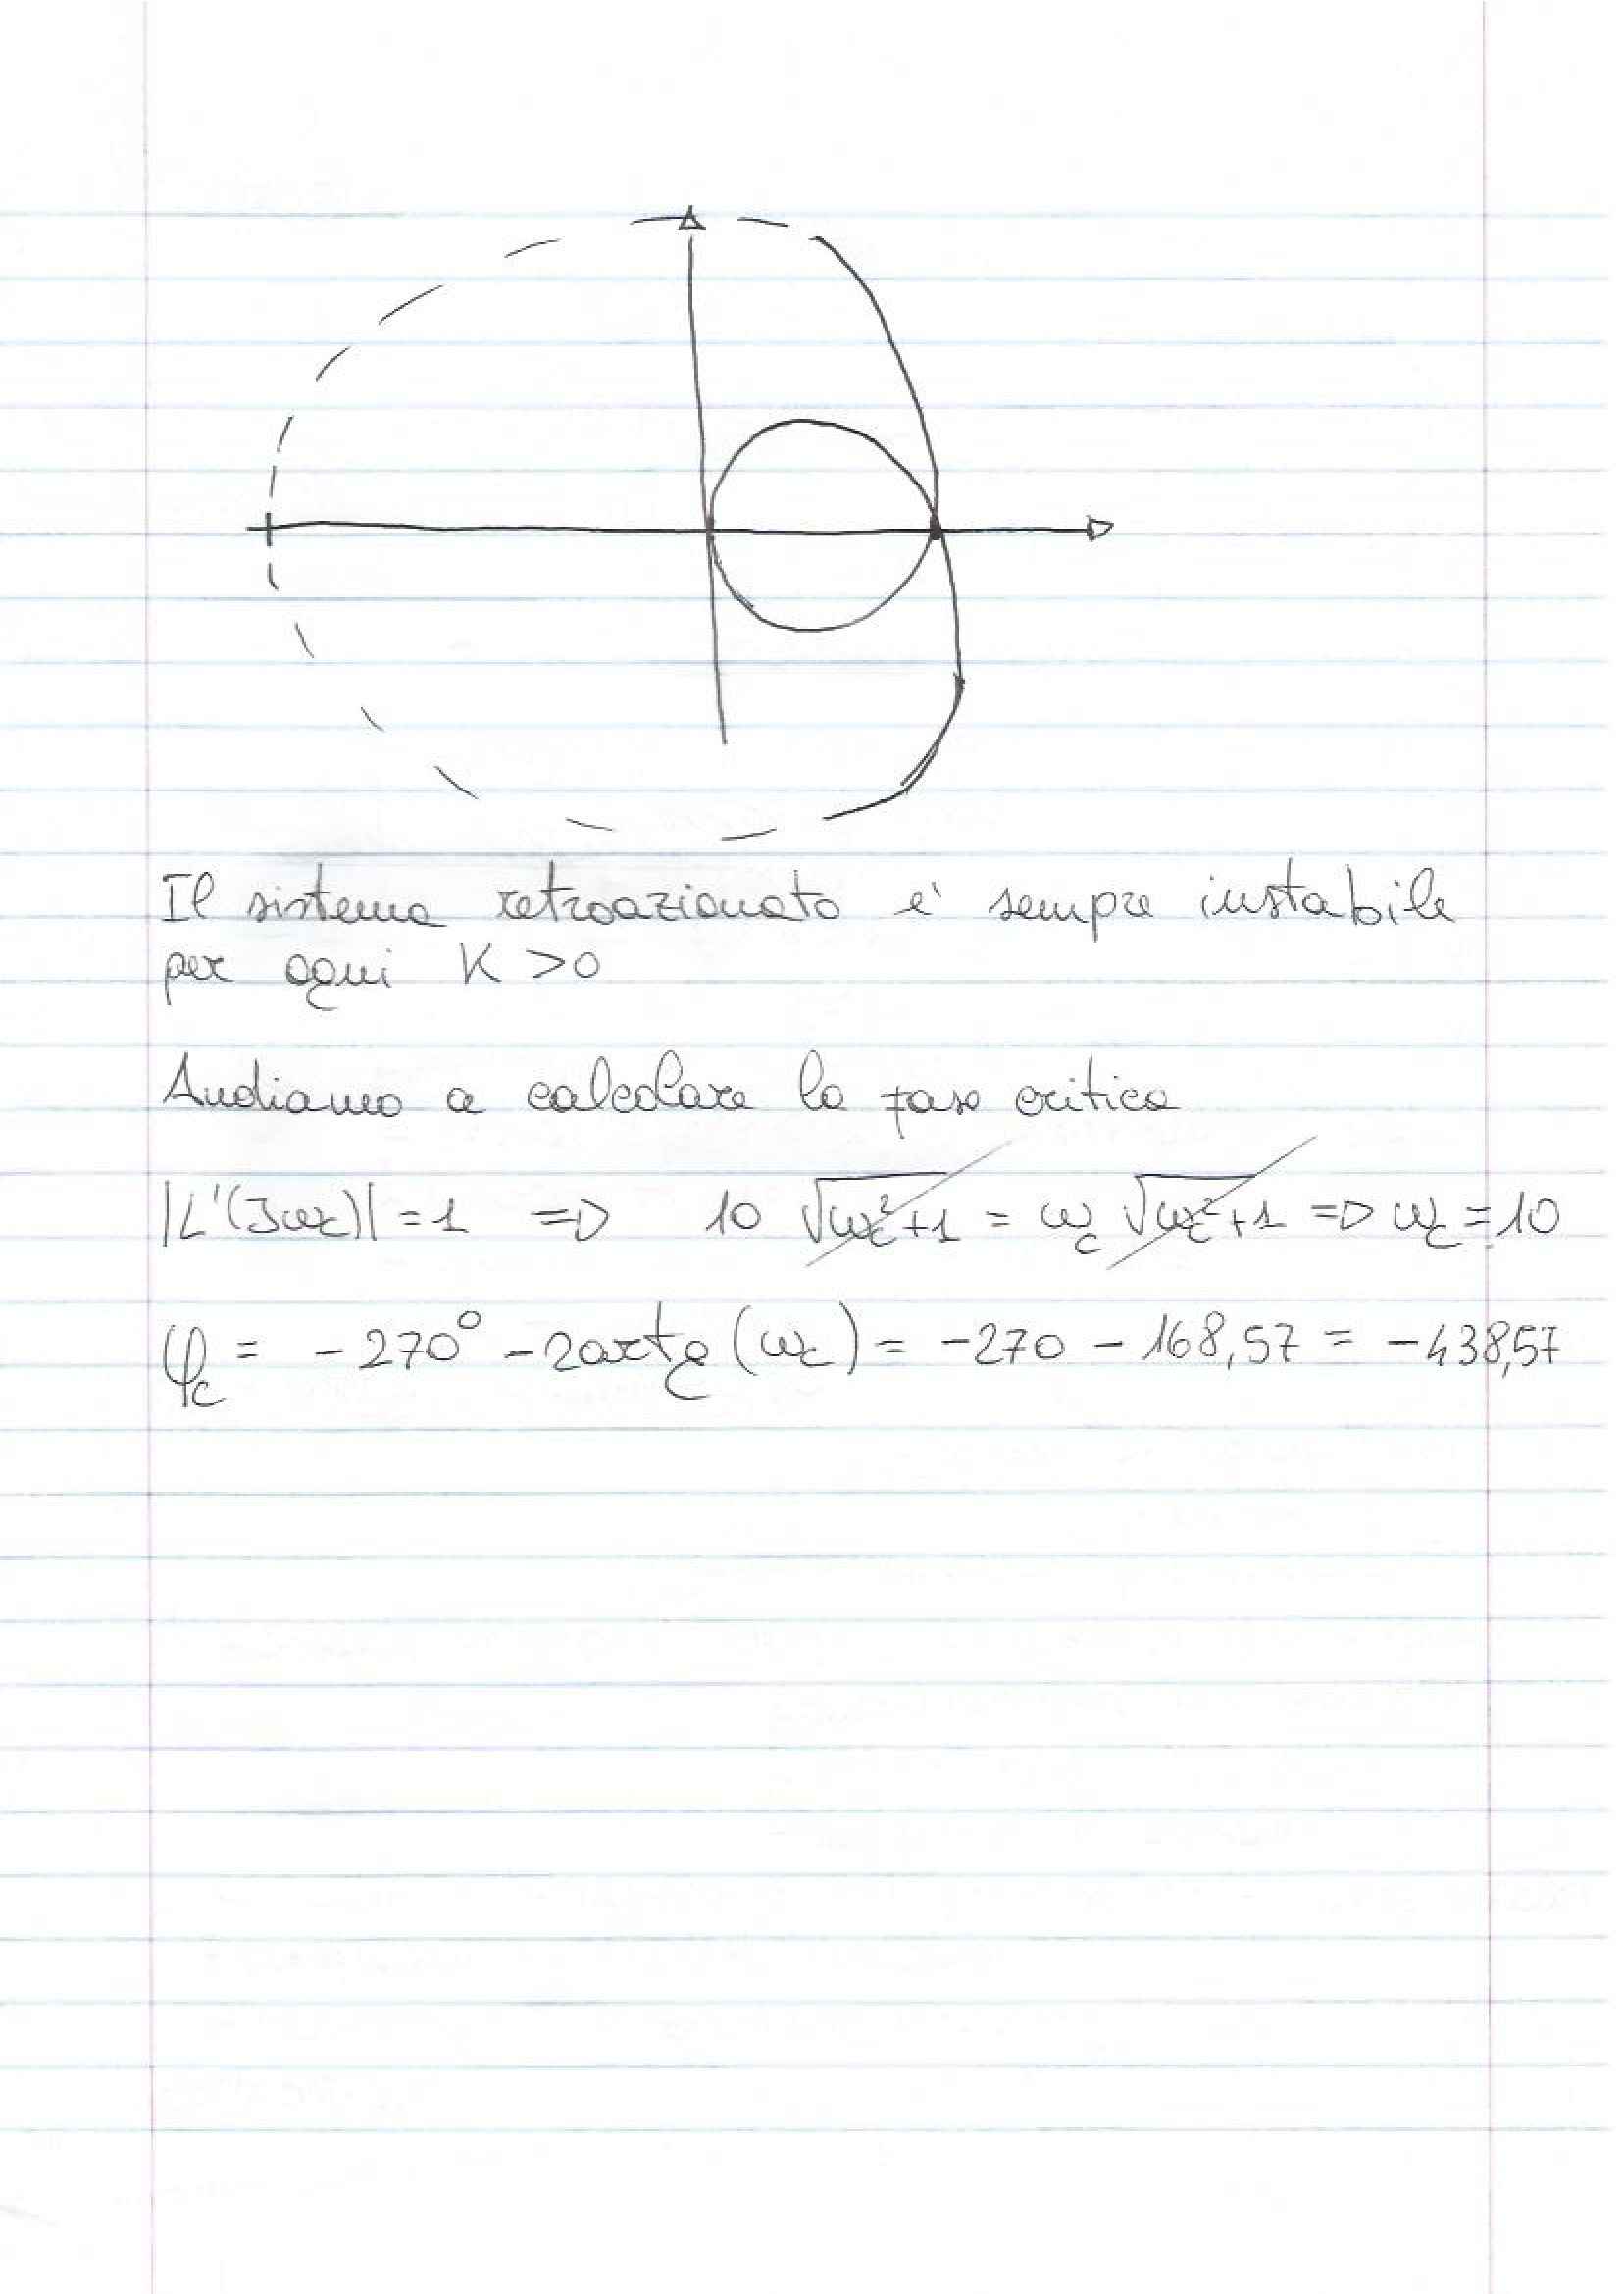 Il sistema retroazionato e' sempre instabile
per ogni K >0
Andiamo a calcolare la fase critica
|L'(Jωc)| = 1 => 10 √ωc²+1 = ωc √ωc²+1 => ωc = 10
φc = -270° - 2arctg (ωc) = -270 - 168,57 = -438,57